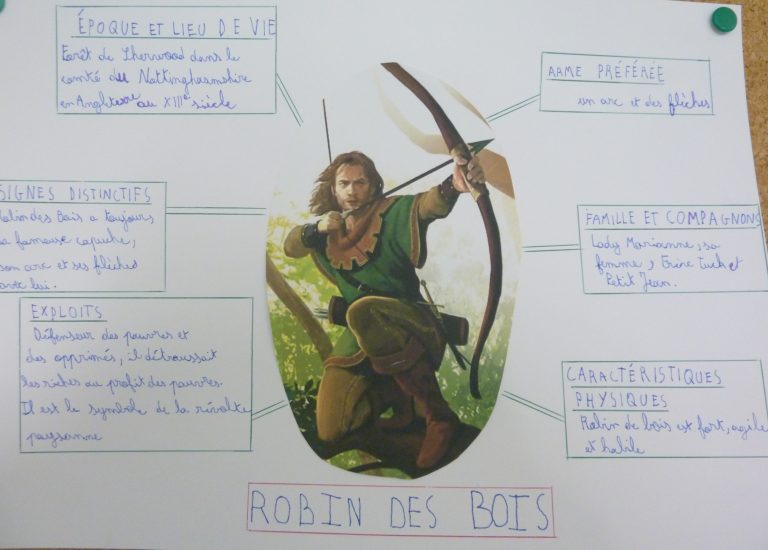 ÉPOQUE ET LIEU DE VIE
Forêt de Sherwood dans le
comté du Nottinghamshire
en Angleterre au XIIIe siècle
ARME PRÉFÉRÉE
un arc et des flèches
SIGNES DISTINCTIFS
Robin des Bois a toujours
sa fameuse capuche,
son arc et ses flèches
avec lui.
FAMILLE ET COMPAGNONS
Lady Marianne, sa
femme, Frère Tuck et
Petit Jean.
EXPLOITS
Défenseur des pauvres et
des opprimés, il détroussait
les riches au profit des pauvres.
Il est le symbole de la révolte
paysanne
CARACTÉRISTIQUES
PHYSIQUES
Robin de bois est fort, agile
et habile
ROBIN DES BOIS